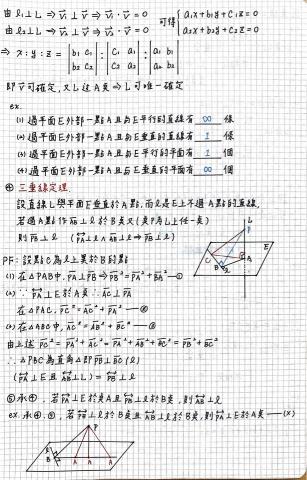 由 l₁⊥L ⇒ v₁⊥v ⇒ v₁·v = 0
由 l₂⊥L ⇒ v₂⊥v ⇒ v₂·v = 0
可得 { a₁x+b₁y+c₁z=0
a₂x+b₂y+c₂z=0
⇒ x:y:z = | b₁ c₁ | : | c₁ a₁ | : | a₁ b₁ |
| b₂ c₂ | | c₂ a₂ | | a₂ b₂ |
即 v 可確定, 又 L 過 A 點 ⇒ L 可唯一確定
ex.
(1) 過平面E外部一點A且與E平行的直線有 ∞ 條
(2) 過平面E外部一點A且與E垂直的直線有 1 條
(3) 過平面E外部一點A且與E平行的平面有 1 個
(4) 過平面E外部一點A且與E垂直的平面有 ∞ 個
④ 三垂線定理
設直線L與平面E垂直於A點, 而l是E上不過A點的直線,
若過A點作 AB⊥l 於B點 (P為L上任一點)
則 PB⊥l (PA⊥l, AB⊥l ⇒ PB⊥l)
PF: 設點C為l上異於B的點
(1) 在△PAB中, PA⊥PB ⇒ PB² = PA² + BA² —①
(2) ∵ PA⊥E於A點 ∴ AC⊥PA
在△PAC, PC² = AC² + PA² —②
(3) 在△ABC中, AC² = AB² + BC² —③
由上述 PC² = PA² + AC² = PA² + AB² + BC² = PB² + BC²
∴ △PBC為直角△即 PB⊥BC (l)
(PA⊥E 且 AB⊥L) = PB⊥l
⑤ 承④, 若 PA⊥E於A點且 PB⊥l於B點, 則 AB⊥l
ex. 承④.⑤, 若 PB⊥l於B點且 AB⊥l於B點, 則 PA⊥E於A點 — (X)
L
P
E
C
A
B
l
P
E
B
l
A
A
A